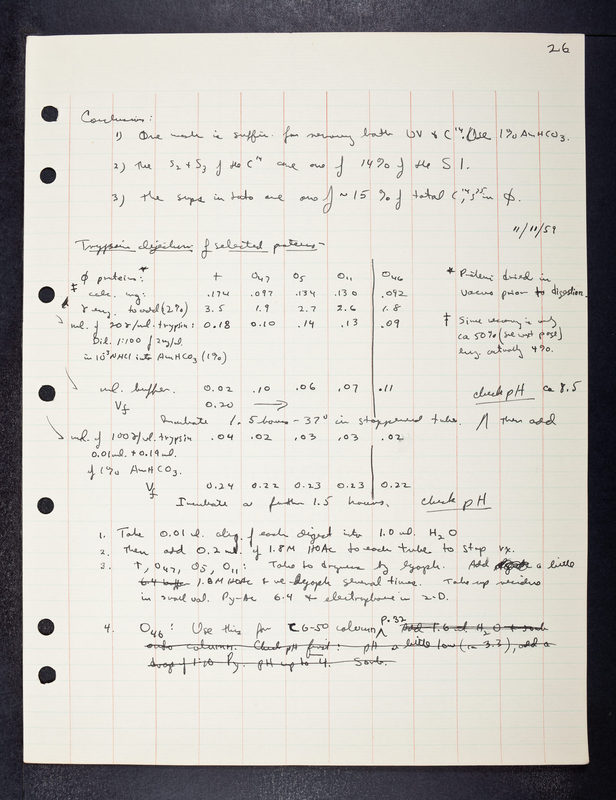 26
Conclusions:
1) One wash is suffic. for removing both UV & C14. Use 1% AmHCO3.
2) The S2 + S3 of the C14 are one of 14% of the S1.
3) The sups in toto are one of ~15% of total C14, S35 in φ.
11/11/59
Trypsin digestion of selected proteins-
φ proteins:* † O47 O5 O11 O46
‡ calc. mg: .174 .097 .134 .130 .092
γ enz. to add (2%) 3.5 1.9 2.7 2.6 1.8
ml. of 20γ/ml. trypsin: 0.18 0.10 .14 .13 .09
Dil. 1:100 of 2mg/ml
in 10-3N HCl into AmHCO3 (1%)
* Proteins dried in
vacuo prior to digestion.
† Since recovery is only
ca 50% (see next page)
enz. actually 4%.
ml. buffer. 0.02 .10 .06 .07 .11
check pH ca 8.5
Vf 0.20 →
Incubate 1.5 hours - 37° in stoppered tube. Then add
ml of 100γ/ml. trypsin .04 .02 .03 .03 .02
0.01ml. + 0.19ml.
of 1% AmHCO3.
Vf 0.24 0.22 0.23 0.23 0.22
Incubate a further 1.5 hours. check pH
1. Take 0.01 ml. aliq. of each digest into 1.0 ml. H2O
2. Then add 0.2 ml. of 1.8M HOAc to each tube to stop rx.
3. †, O47, O5, O11: Take to dryness by lyoph. Add a little
6.4 buff 1.8M HOAc & re-lyoph several times. Take up residue
in small vol. Py-Ac 6.4 & electrophorese in 2-D.
4. O46: Use this for CG-50 column p.32 Add 1.6 ml. H2O & soak
onto column. Check pH first: pH a little low (ca 3.3), add a
drop of 1:10 Py. pH up to 4. Sorb.